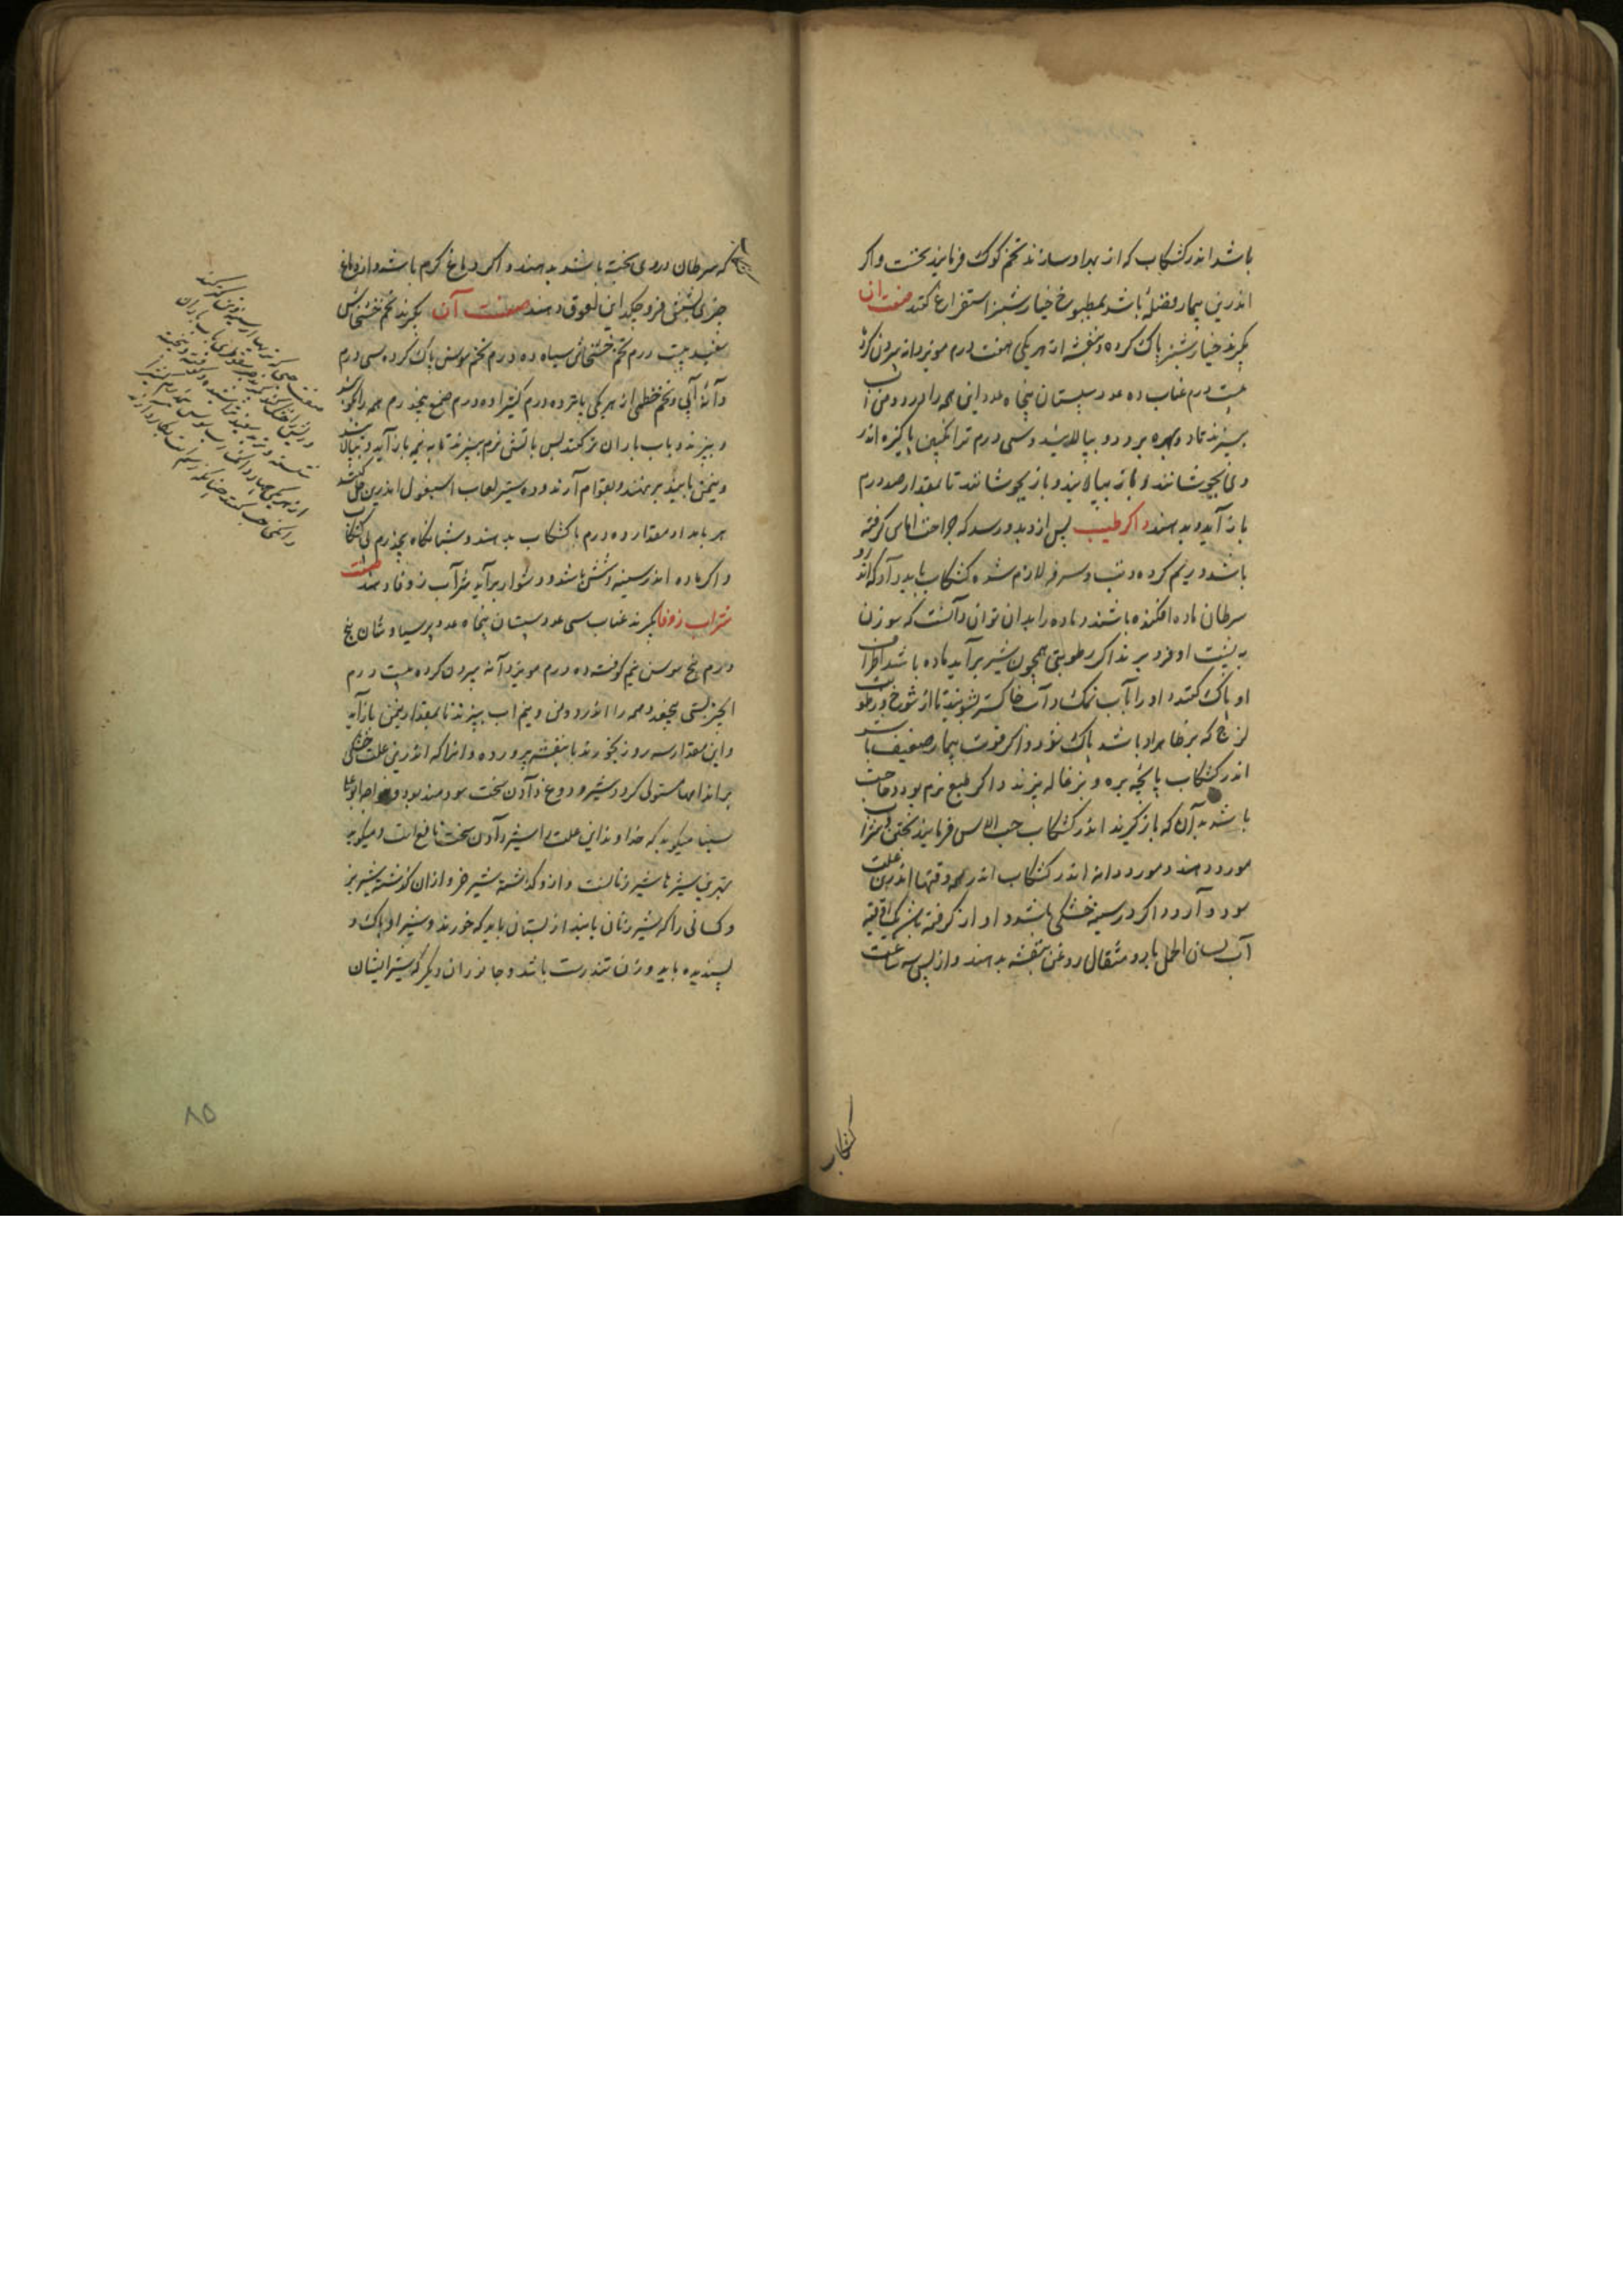 باشد اندر کشکاب که از بهر او سازند تخم کوک فرمایند پخت و اکر
اندرین بیمار فضلهٔ باشد بمطبوخ خیار شنبر استفراغ کنند صفت آن
بکیرند خیار شنبر پاک کرده و بنفشه از هر یکی هفت درم مویز دانه بیرون کرده
بیست درم عناب ده عدد سپستان پنجاه عدد این همه را اندر دو من آب
بپزند تا دو بهره برود و بپالایند و سی درم ترانکبین پاکیزه اندر
وی بجوشانند و باز بپالایند و باز بجوشانند تا بمقدار صد درم
باز آید و بدهند و اکر طبیب پس از دیدو رسد که جراحت اماس کرفته
باشد و ریم کرده و تب و سرفه لازم شده کشکاب باید داد که اندرو
سرطان ماده افکنده باشند و ماده را بدان توان دانست که سوزن
به پشت او فرو برند اکر رطوبتی همچون شیر برآید ماده باشد اطراف
او پاک کنند و او را بآب نمک و آب خاکستر بشویند تا از شوخ و رطوبت
لزج که بر ظاهر او باشد پاک شود و اکر قوت بیمار ضعیف باشد
اندر کشکاب پایچه بره و بزغاله پزند و اکر طبع نرم بود و حاجت
باشد بدان که باز کیرند اندر کشکاب حب الاس فرمایند پختن و شراب
مورد دهند و مورد دانه اندر کشکاب اندر همه وقتها اندرین علت
سود دارد و اکر در سینه خشکی باشد و آواز کرفته باشد یک اوقیه
آب لسان الحمل با دو مثقال روغن بنفشه بدهند و از پس سه ساعت
کشکاب
که سرطان دروی پخته باشند بدهند و اکر دماغ کرم باشد و از دماغ
چیزی بشش فرو چکد این لعوق دهند صفت آن بکیرند تخم خشخاش
سفید بیست درم تخم خشخاش سیاه ده درم تخم سوسن پاک کرده سی درم
دانهٔ آبی و تخم خطمی از هر یکی پانزده درم کتیرا ده درم صمغ پنج درم همه را بکوبند
و بپزند و بآب باران تر کنند پس بآتش نرم بپزند تا به نیمه باز آید و بپالایند
و نیم من پانیذ برنهند و بقوام آرند و ده ستیر لعاب اسبغول اندرین حل کنند
هر بامداد مقدار ده درم با کشکاب بدهند و شبانکاه پنج درم بی کشکاب
و اکر ماده اندر سینه و شش باشد و دشوار برآید شراب زوفا دهند صفت
شراب زوفا بکیرند عناب سی عدد سپستان پنجاه عدد پرسیاوشان پنج
درم بیخ سوسن نیم کوفته ده درم مویز دانه بیرون کرده بیست درم
انجیر بستی پنج عدد همه را اندر دو من و نیم آب بپزند تا بمقدار نیم من باز آید
و این مقدار سه روز بخورند با بنفشه پرورده و انرا که اندرین علت خشکی
بر اندامها مستولی کردد شیر و دوغ دادن سخت سودمند بود و خواجه ابو علی
سینا میکوید که خداوند این علت را شیر دادن سخت نافع است و میکوید
بهترین شیرها شیر زنانست و ازو کذشته شیر خر و از ان کذشته شیر بز
و کسانی را که شیر زنان یابند از پستان باید که خورند و شیر او پاک و
پسندیده باید و زن تندرست باشد و جانوران دیکر که شیر ایشان
۸۵